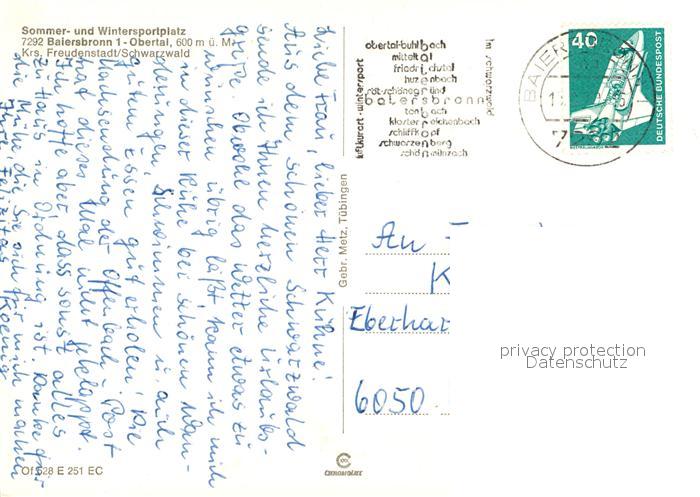 Sommer- und Wintersportplatz
7292 Baiersbronn 1 - Obertal, 600 m ü. M.
Krs. Freudenstadt/Schwarzwald
obertal-buhlbach
mitteltal
friedrichstal
huzenbach
röt-schönegründ
baiersbronn
tonbach
klosterreichenbach
schliffkopf
schwarzenberg
schönmünzach
luftkurort · wintersport
im schwarzwald
BAIERSBRONN
40
DEUTSCHE BUNDESPOST
Liebe Frau, lieber Herr Kühne!
Aus dem schönen Schwarzwald
sende ich Ihnen herzliche Urlaubs-
grüße. Obwohl das Wetter etwas zu
wünschen übrig läßt, kann ich mich
in dieser Ruhe bei schönen Wan-
derungen, Schwimmen u. auch
gutem Essen gut erholen. Die
Nachsendung der Offenbach-Post
hat dieses Mal gut geklappt.
Ich hoffe aber, dass sonst alles
zu Haus in Ordnung ist. Danke für
die Mühe die Sie sich für mich machen
Ihre Felizitas Koenig
Gebr. Metz, Tübingen
An
K
Eberhar
6050
privacy protection
Datenschutz
Of 628 E 251 EC